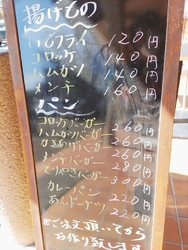 揚げもの
いもフライ 120円
コロッケ 140円
ハムカツ 140円
メンチ 160円
パン
コロッケバーガー 260円
ハムカツバーガー 260円
からあげバーガー 260円
メンチバーガー 280円
てりやきバーガー 300円
カレーパン 220円
あんドーナツ 220円
※ご注文頂いてから
お作り致します